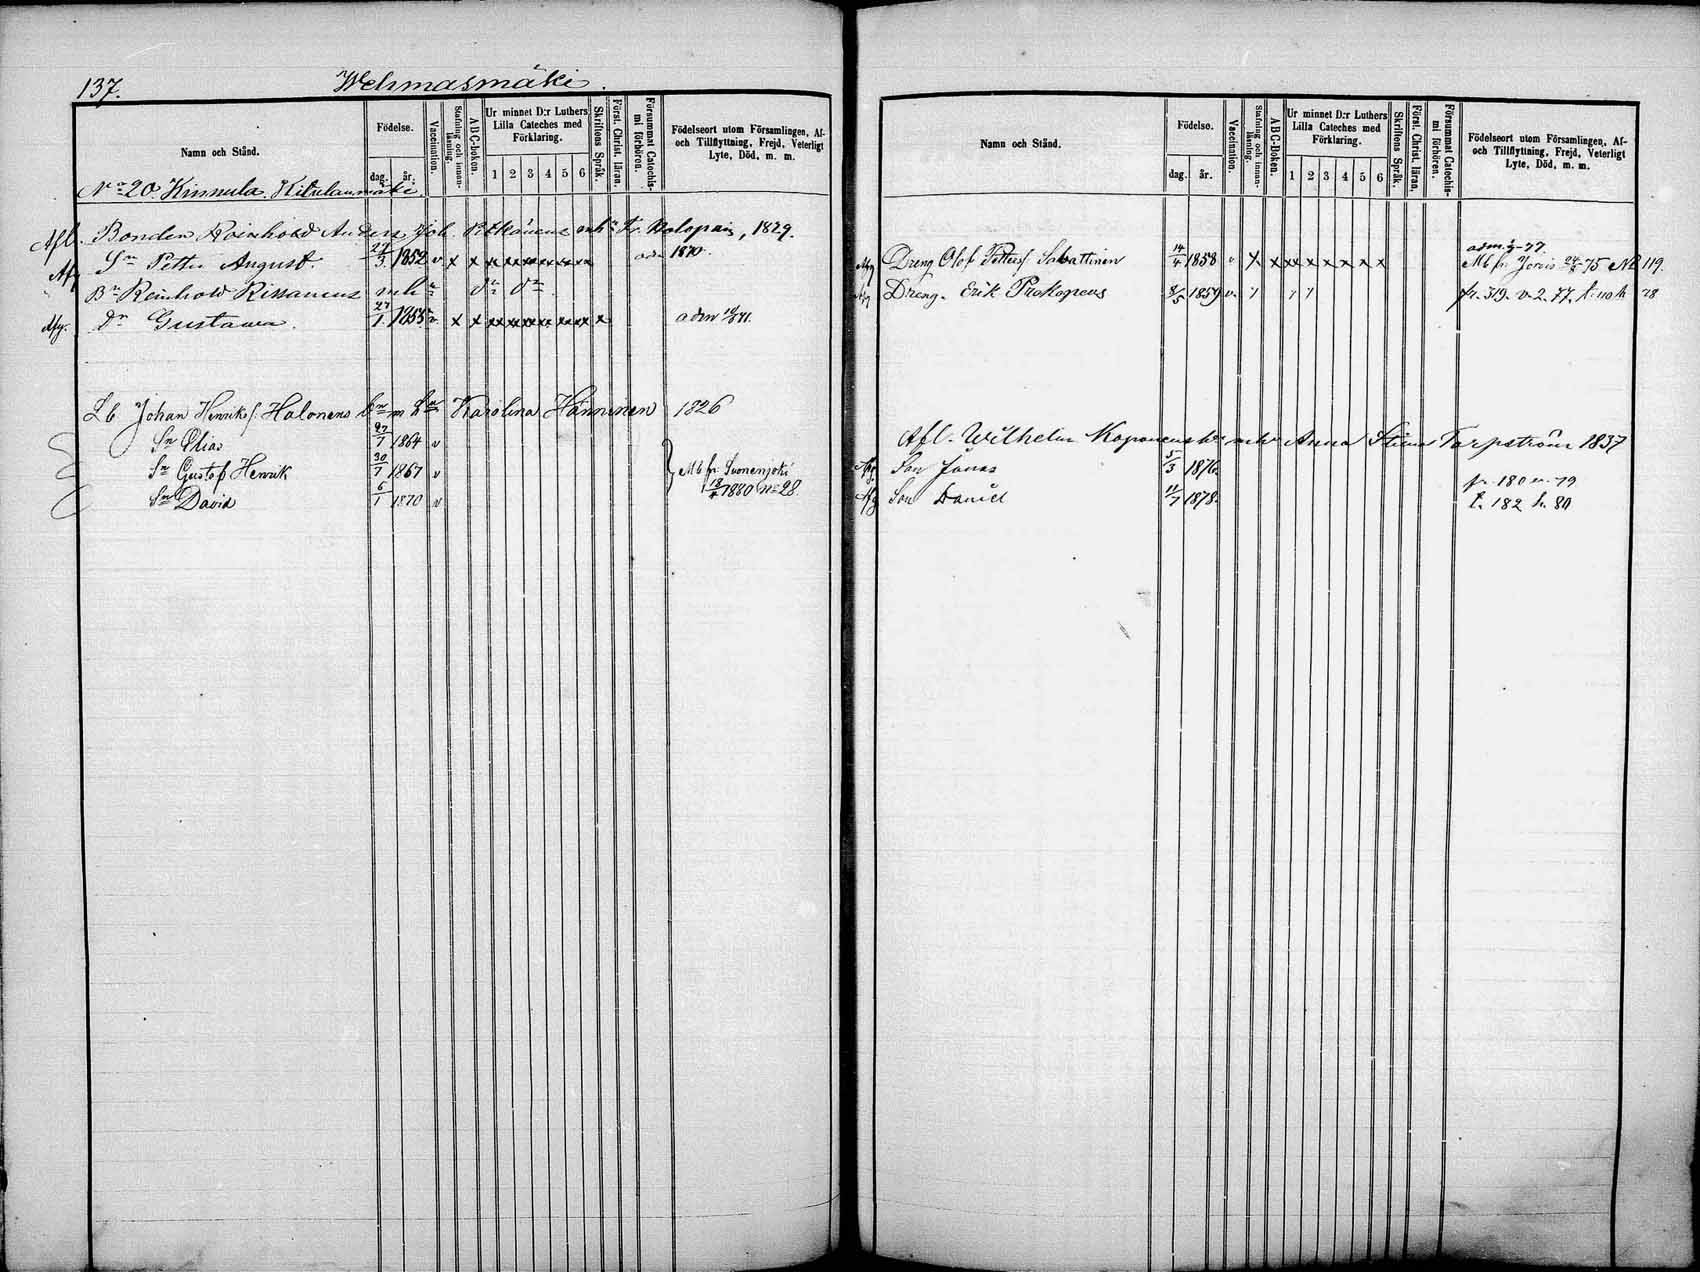 137. Wehmasmäki.
Namn och Stånd.
Födelse.
dag. år.
Vaccination.
Stafning och innanläsning.
ABC-boken.
Ur minnet D:r Luthers Lilla Cateches med Förklaring.
1 2 3 4 5 6
Skriftens Språk.
Först. Christ. läran.
Försummat Catechismi förhören.
Födelseort utom Församlingen, Af- och Tillflyttning, Frejd, Veterligt Lyte, Död, m. m.
No 20. Kinnula.
Afl. Bonden Reinhold Anders Joh. mh Kr. Halopain, 1829.
Afg Sn Petter August. 27/3 1852 v x x xx xx xx xx xx xx 1870.
Bn Reinhold Rissanens mh dn dn
Afg. dr Gustawa. 27/1 1855 v x x xx xx xx xx xx xx x
Lb Johan Henriks. Halonens Karolina Hänninen 1826
Sn Elias 27/7 1864 v
Sn Gustaf Henrik 30/7 1867 v
Sn David 6/1 1870 v
Mb fr Suonenjoki
18/4 1880 No 28.
Namn och Stånd.
Födelse.
dag. år.
Vaccination.
Stafning och innanläsning.
ABC-boken.
Ur minnet D:r Luthers Lilla Cateches med Förklaring.
1 2 3 4 5 6
Skriftens Språk.
Först. Christ. läran.
Försummat Catechismi förhören.
Födelseort utom Församlingen, Af- och Tillflyttning, Frejd, Veterligt Lyte, Död, m. m.
Afg Dreng Olof Petters. Sabattinen 14/4 1858 v x x xx x x x x x Mb fr Jorois 75 No 119.
Afg Dreng. Erik Prokopeus 8/5 1859 v. fr. 319. v. 2. 77. 78
Afl. Wilhelm Koponens mhu Anna Stina Tarpström 1837
Afg. Son Jonas 5/3 1876.
Afg Son Daniel 11/7 1878.
fr. 180 v. 79
t. 182 h. 80